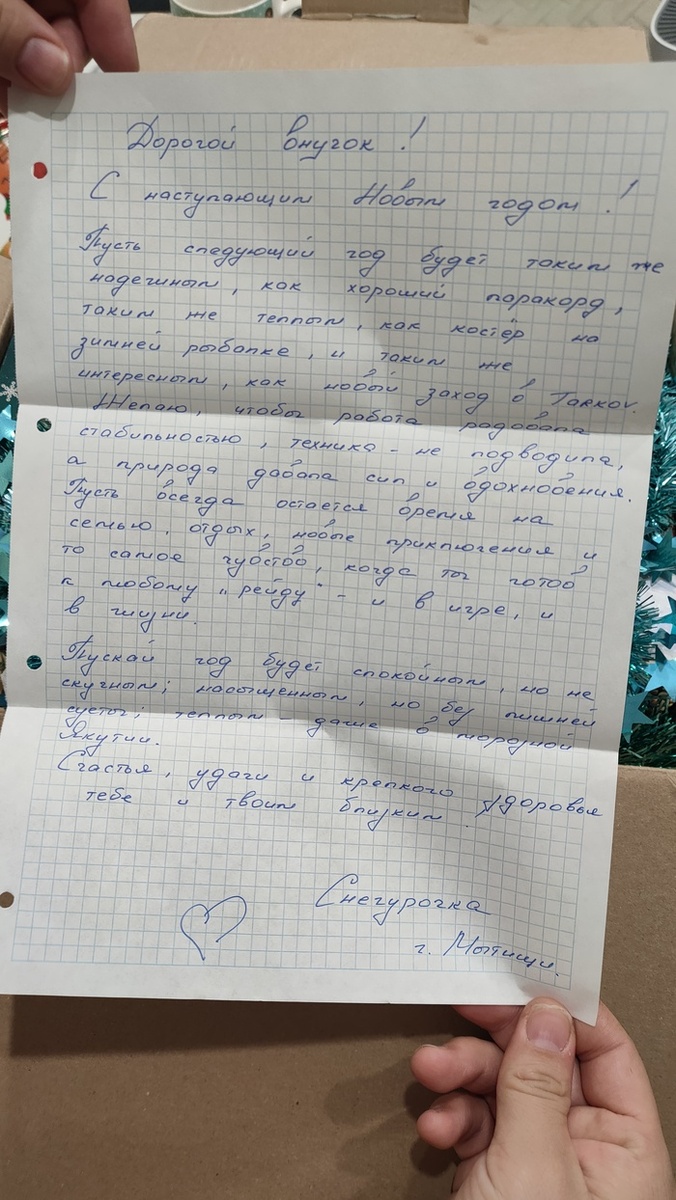 Дорогой внучок!
С наступающим Новым годом!
Пусть следующий год будет таким же
надежным, как хороший паракорд,
таким же теплым, как костёр на
зимней рыбалке, и таким же
интересным, как новый заход в Tarkov.
Желаю, чтобы работа радовала
стабильностью, техника - не подводила,
а природа давала сил и вдохновения.
Пусть всегда остается время на
семью, отдых, новые приключения и
то самое чувство, когда ты готов
к любому "рейду" - и в игре, и
в жизни.
Пускай год будет спокойным, но не
скучным; насыщенным, но без лишней
суеты; теплым - даже в морозной
Якутии.
Счастья, удачи и крепкого здоровья
тебе и твоим близким.
Снегурочка
г. Мытищи.